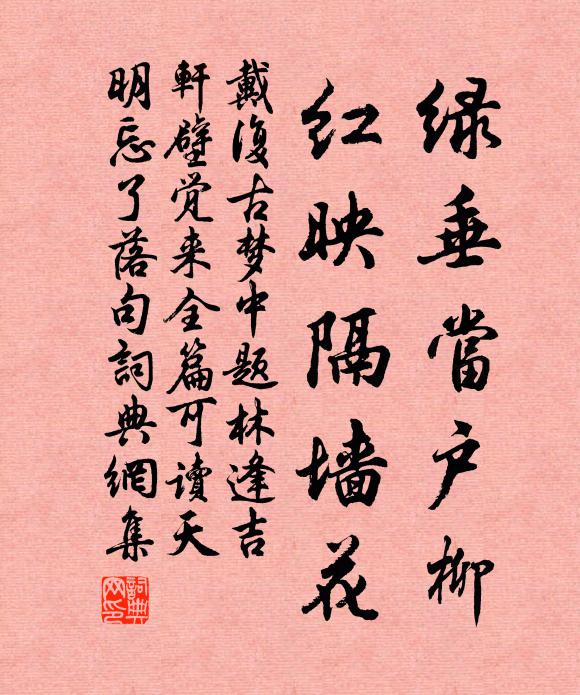 绿垂當户柳
红映隔墙花
戴復古梦中题林逢吉
軒壁觉来全篇可读天
明忘了落句詞典網集
詞典网印